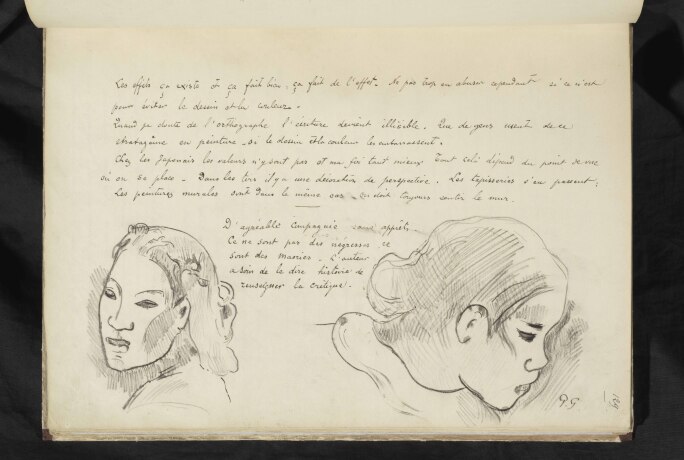 Les effets ça existe et ça fait bien, ça fait de l'effet. Ne pas trop en abuser cependant si ce n'est
pour éviter le dessin et la couleur.
Quand je doute de l'orthographe l'écriture devient illisible. Que de gens usent de ce
stratagème en peinture - où le dessin et la couleur les embarrassent.
Chez les Japonais les valeurs n'y sont pas et ma foi tant mieux Tout cela dépend du point de vue
où on se place - Dans les tirs il y a une décoration de perspective. Les tapisseries s'en passent;
Les peintures murales sont dans le même cas - doit toujours sentir le mur.
D'agréable compagnie sans apprêts
Ce ne sont pas des négresses ce
sont des maories. L'auteur
a soin de le dire histoire de
renseigner la critique.
P.G